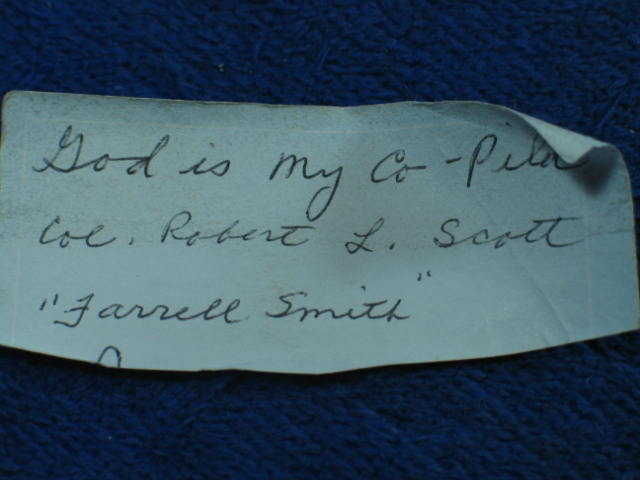 God is my Co-Pilo
Col. Robert L. Scott
"Farrell Smith"